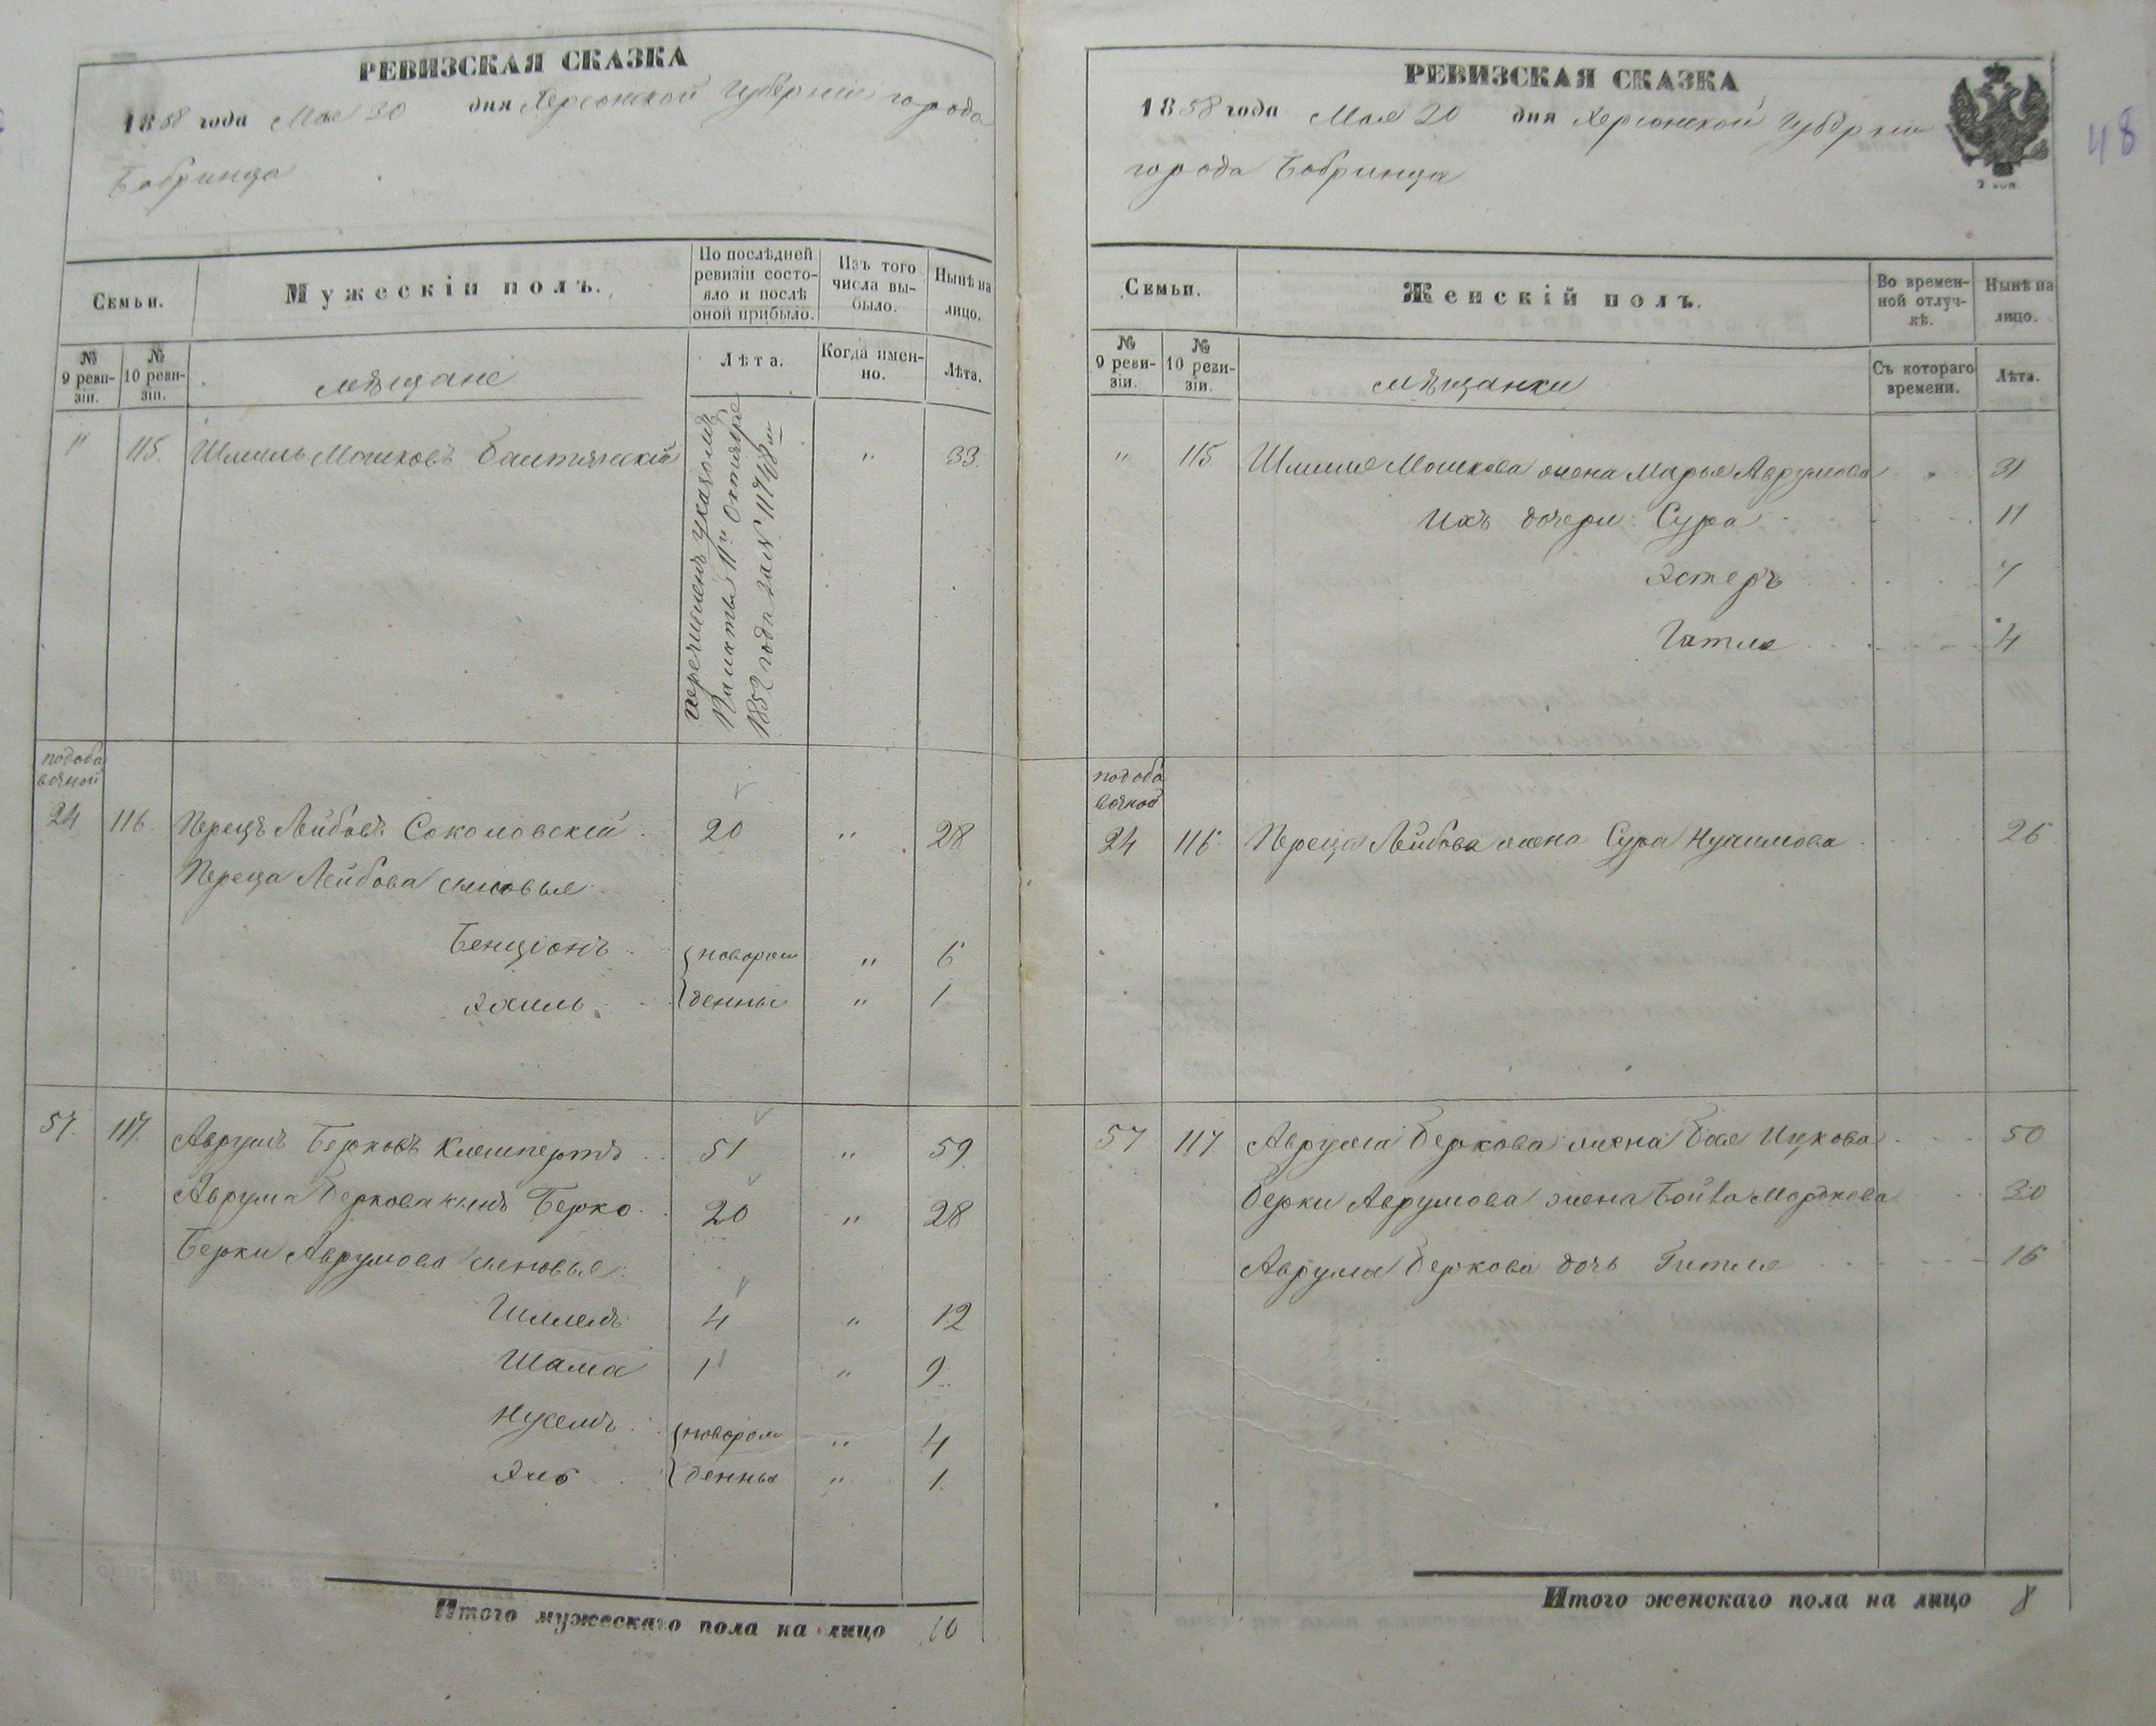 РЕВИЗСКАЯ СКАЗКА
1858 года Мая 30 дня Херсонской Губерніи города
Бобринца
Семьи.
Мужескій полъ.
По послѣдней
ревизіи состо-
яло и послѣ
оной прибыло.
Изъ того
числа вы-
было.
Нынѣ на
лицо.
№
9 реви-
зіи.
№
10 реви-
зіи.
мѣщане
Лѣта.
Когда имен-
но.
Лѣта.
" 115. Шмиль Мошковъ " 33.
перечисленъ указомъ
Палаты 11го Октября
1852 года за №
подоба
вочной
24 116. Перецъ Лейбовъ Соколовскій 20 " 28
Переца Лейбова сыновья
Бенціонъ новорож " 6
Эхиль денны " 1
57. 117. Аврумъ Берковъ 51 " 59
Аврума Беркова сынъ Берко 20 " 28
Берки Аврумова сыновья
Шлемъ 4 " 12
Шама 1 " 9
Нусемъ новорож " 4
денны " 1.
Итого мужескаго пола на лицо 10
РЕВИЗСКАЯ СКАЗКА
1858 года Мая 20 дня Херсонской Губерніи
города Бобринца
2 коп.
48
Семьи.
Женскій полъ.
Во времен-
ной отлуч-
кѣ.
Нынѣ на
лицо.
№
9 реви-
зіи.
№
10 реви-
зіи.
мѣщанки
Съ котораго
времени.
Лѣта.
" 115 Шмиля Мошкова жена Марья Аврумова 31
Ихъ дочери: Сура 11
Эстеръ 7
Гитля 4
подоба
вочной
24 116 Переца Лейбова жена Сура Нухимова 26
57 117 Аврума Беркова жена Бая Ицкова 50
Берки Аврумова жена Мордкова 30
Аврума Беркова дочь Гитля 16
Итого женскаго пола на лицо 8